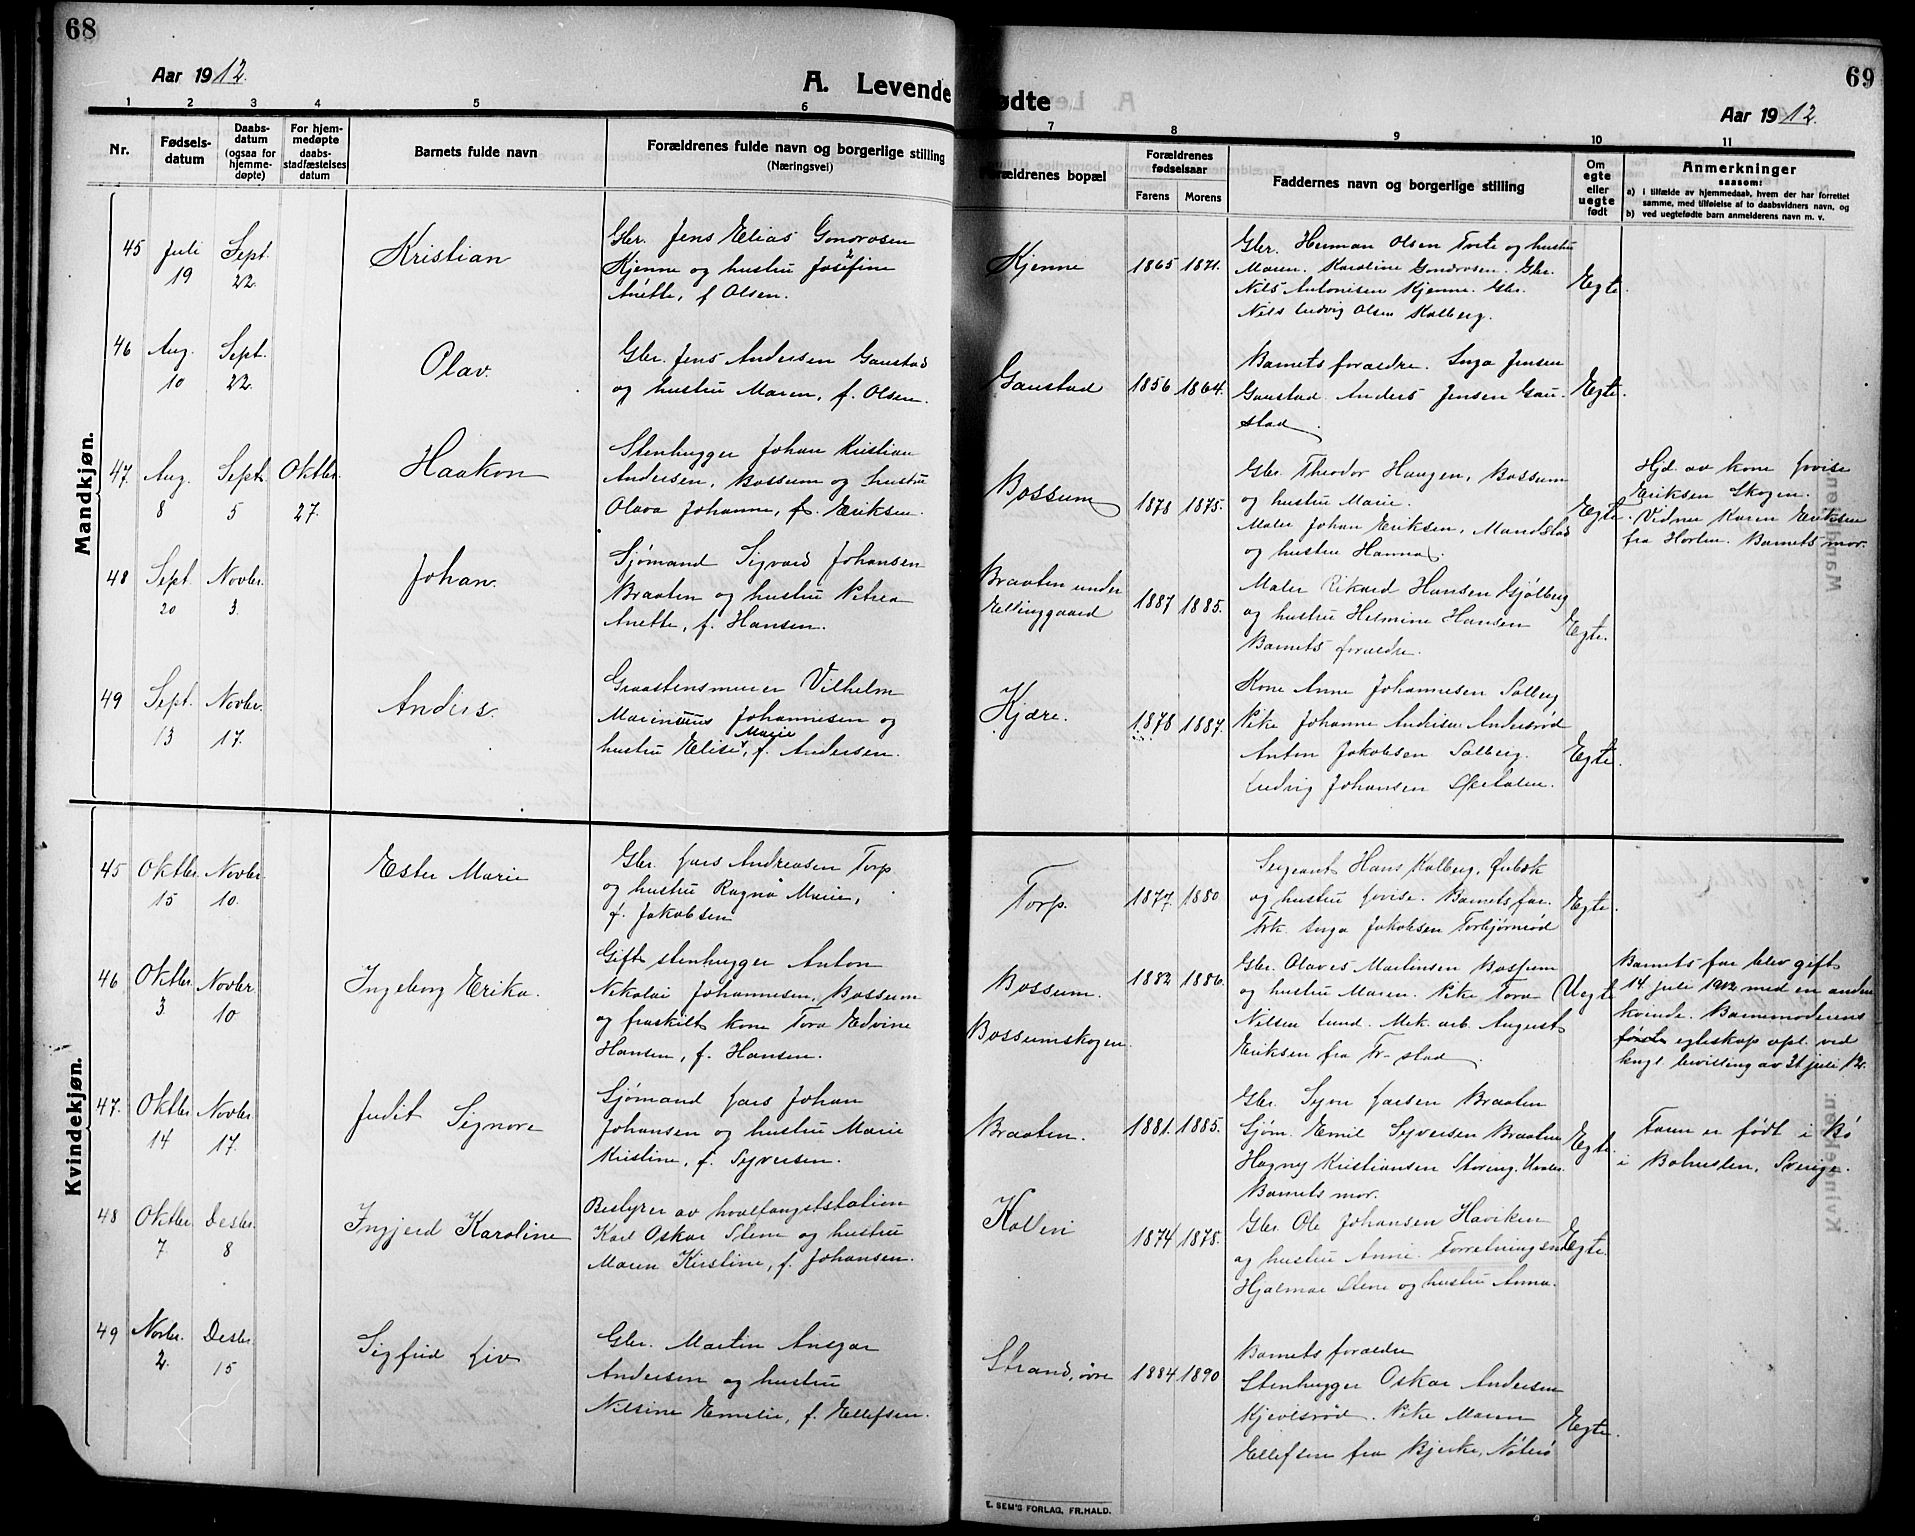 68
Aar 1912.
A. Levende
1 2 3 4 5 6
Nr.
Fødsels-
datum
Daabs-
datum
(ogsaa for
hjemme-
døpte)
For hjem-
medøpte
daabs-
stadfæstelses
datum
Barnets fulde navn
Forældrenes fulde navn og borgerlige stilling
(Næringsvei)
Mandkjøn.
45 Juli 19 Sept. 22. Kristian
Gbr. Jens Elias Gondrosen
Kjenne og hustru Josefine
Anette, f. Olsen.
46 Aug. 10 Sept. 22. Olav.
Gbr. Jens Andersen Gaustad
og hustru Maren, f. Olsen.
47. Aug. 8 Sept. 5 Oktbr. 27. Haakon
Stenhugger Johan Kristian
Andersen, Bossum og hustru
Olava Johanne, f. Eriksen.
48 Sept. 20 Novbr. 3. Johan.
Sjømand Sigvard Johansen
Braaten og hustru Petrea
Anette, f. Hansen.
49 Sept. 13 Novbr. 17. Anders.
Graastensmurer Vilhelm
Marinius Johannesen og
hustru Elise Marie, f. Andersen.
Kvindekjøn.
45 Oktbr. 15 Novbr. 10. Ester Marie
Gbr. Lars Andreasen Torp
og hustru Ragna Marie,
f. Jakobsen
46 Oktbr. 3 Novbr. 10 Ingeborg Erika.
Gift stenhugger Anton
Nikolai Johannesen, Bossum
og fraskilt kone Tora Edvine
Hansen, f. Hansen.
47. Oktbr. 14 Novbr. 17. Judit Signora
Sjømand Lars Johan
Johansen og hustru Marie
Kristine, f. Syversen.
48 Oktbr. 7 Desbr. 8 Ingjerd Karoline
Bestyrer av hvalfangststation
Karl Oskar Stene og hustru
Maren Kirstine, f. Johansen.
49 Novbr. 2. Desbr. 15 Sigfrid Liv
Gbr. Martin Ansgar
Andersen og hustru
Nilsine Emelie, f. Ellefsen.
69
ødte
Aar 1912.
7 8 9 10 11
Forældrenes bopæl
Forældrenes
fødselsaar
Farens Morens
Faddernes navn og borgerlige stilling
Om
egte
eller
uegte
født
Anmerkninger
saasom:
a) i tilfælde av hjemmedaab, hvem der har forrettet
samme, med tilføielse af to daabsvidners navn, og
b) ved uegtefødte barn anmelderens navn m. v.
Kjenne 1865 1871.
Gbr. Herman Olsen Tvete og hustru
Maren. Karoline Gondrosen. Gbr.
Nils Antonisen Kjenne. Gbr.
Nils Ludvig Olsen Kolberg.
Egte.
Gaustad 1856 1864.
Barnets forældre. Inga Jensen
Gaustad. Anders Jensen Gau-
stad.
Egte.
Bossum 1878 1875.
Gbr. Theodor Haugen, Bossum
og hustru Marie.
Maler Johan Eriksen, Mandstad
og hustru Hanna.
Egte.
Hjd. av kone Lovise
Eriksen Skogen.
Vidner Karen Eriksen
fra Horten. Barnets mor.
Braaten under
Ellinggaard
1887 1885.
Maler Rikard Hansen Gjølberg
og hustru Helmine Hansen
Barnets forældre.
Egte.
Kjære. 1878 1887.
Kone Anne Johannesen Solberg
Pike Johanne Andersen Andersrød
Anton Jakobsen Solberg.
Ludvig Johansen Spetalen.
Egte.
Torp. 1877 1880
Sergeant Hans Kolberg, Ørebæk
og hustru Lovise. Barnets far.
Frk. Inga Jakobsen Torbjørnrød
Egte.
Bossum.
Bossumskogen.
1882 1886.
Gbr. Olaves Martinsen Bossum
og hustru Maren. Pike Tora
Nilsen Lund. Mek. arb. August
Eriksen fra Fr-stad.
Uegte
Barnets far blev gift
14 juli 1912 med en anden
kvinde. Barnemoderens
egteskap opl. ved
kngl. bevilling av 31 juli 12.
Braaten. 1881. 1885.
Gbr. Syver Larsen Braaten
Sjøm. Emil Syversen Braaten
Hagny Kristiansen Storeng, Hvaler.
Barnets mor.
Egte.
Faren er født i Bø
i Bohuslen, Sverige.
Kolleri 1874 1878.
Gbr. Ole Johansen Haviken
og hustru Anne. Forretningsm.
Hjalmar Stene og hustru Anna.
Egte.
Strand, øvre 1884 1890
Barnets forældre
Stenhugger Oskar Andersen
Kjevlsrød. Pike Maren
Ellefsen fra Bjerke, Nøterø
Egte.
E. SEM'S FORLAG, FR.HALD.